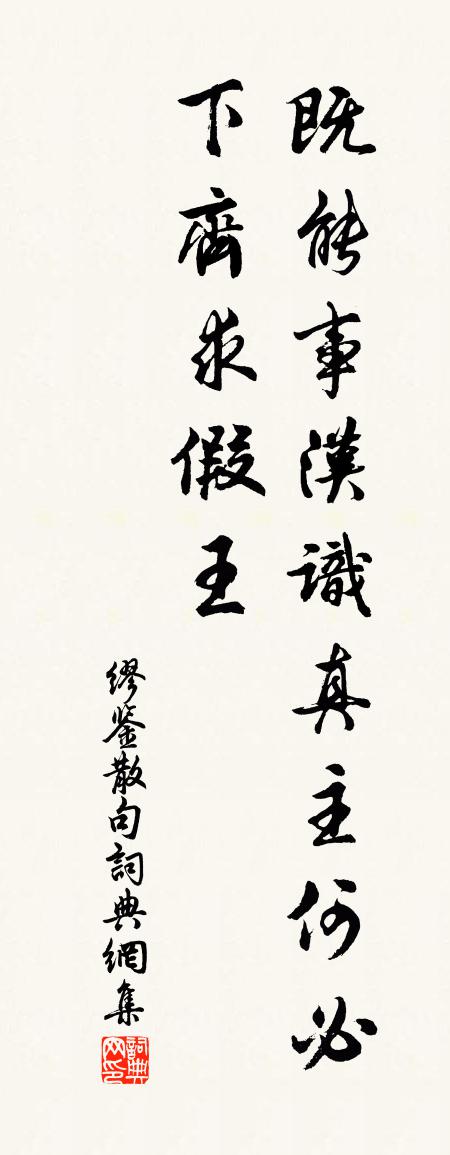 既能事漢識真主何必
下齊求假王
繆鉴散句詞典網集
詞典网印